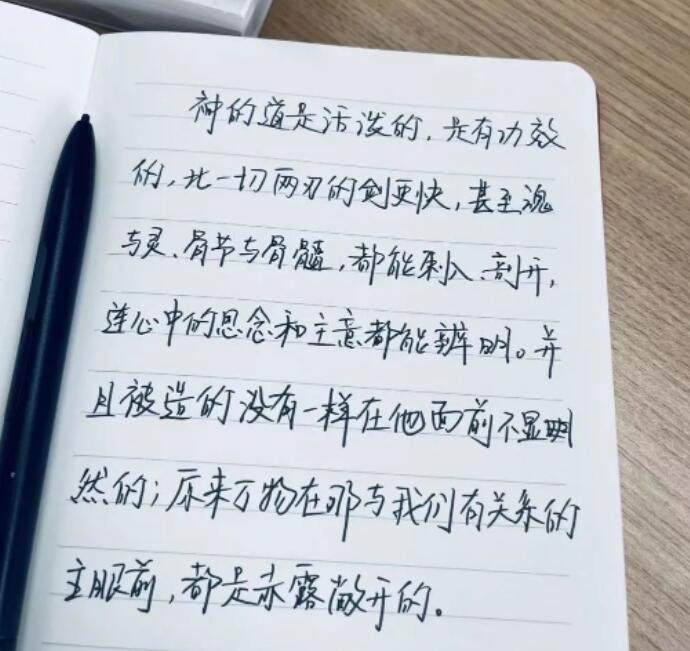 神的道是活泼的，是有功效
的，比一切两刃的剑更快，甚至魂
与灵、骨节与骨髓，都能刺入、剖开，
连心中的思念和主意都能辨明。并
且被造的没有一样在他面前不显明
然的；原来万物在那与我们有关系的
主眼前，都是赤露敞开的。